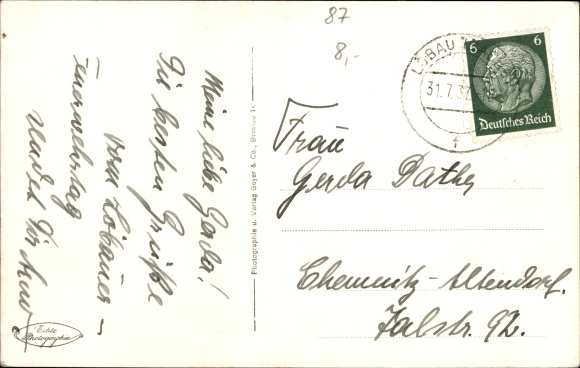 87
8,-
LÖBAU
31.7.37
6 6
Deutsches Reich
Meine liebe Gerda!
Die besten Grüße
vom Löbauer-
Feuerwehrtag
sendet Dir
Photographie u. Verlag Geyer & Co., Breslau I
Frau
Gerda Dathe
Chemnitz-Altendorf.
Talstr. 92.
Echte
Photographie